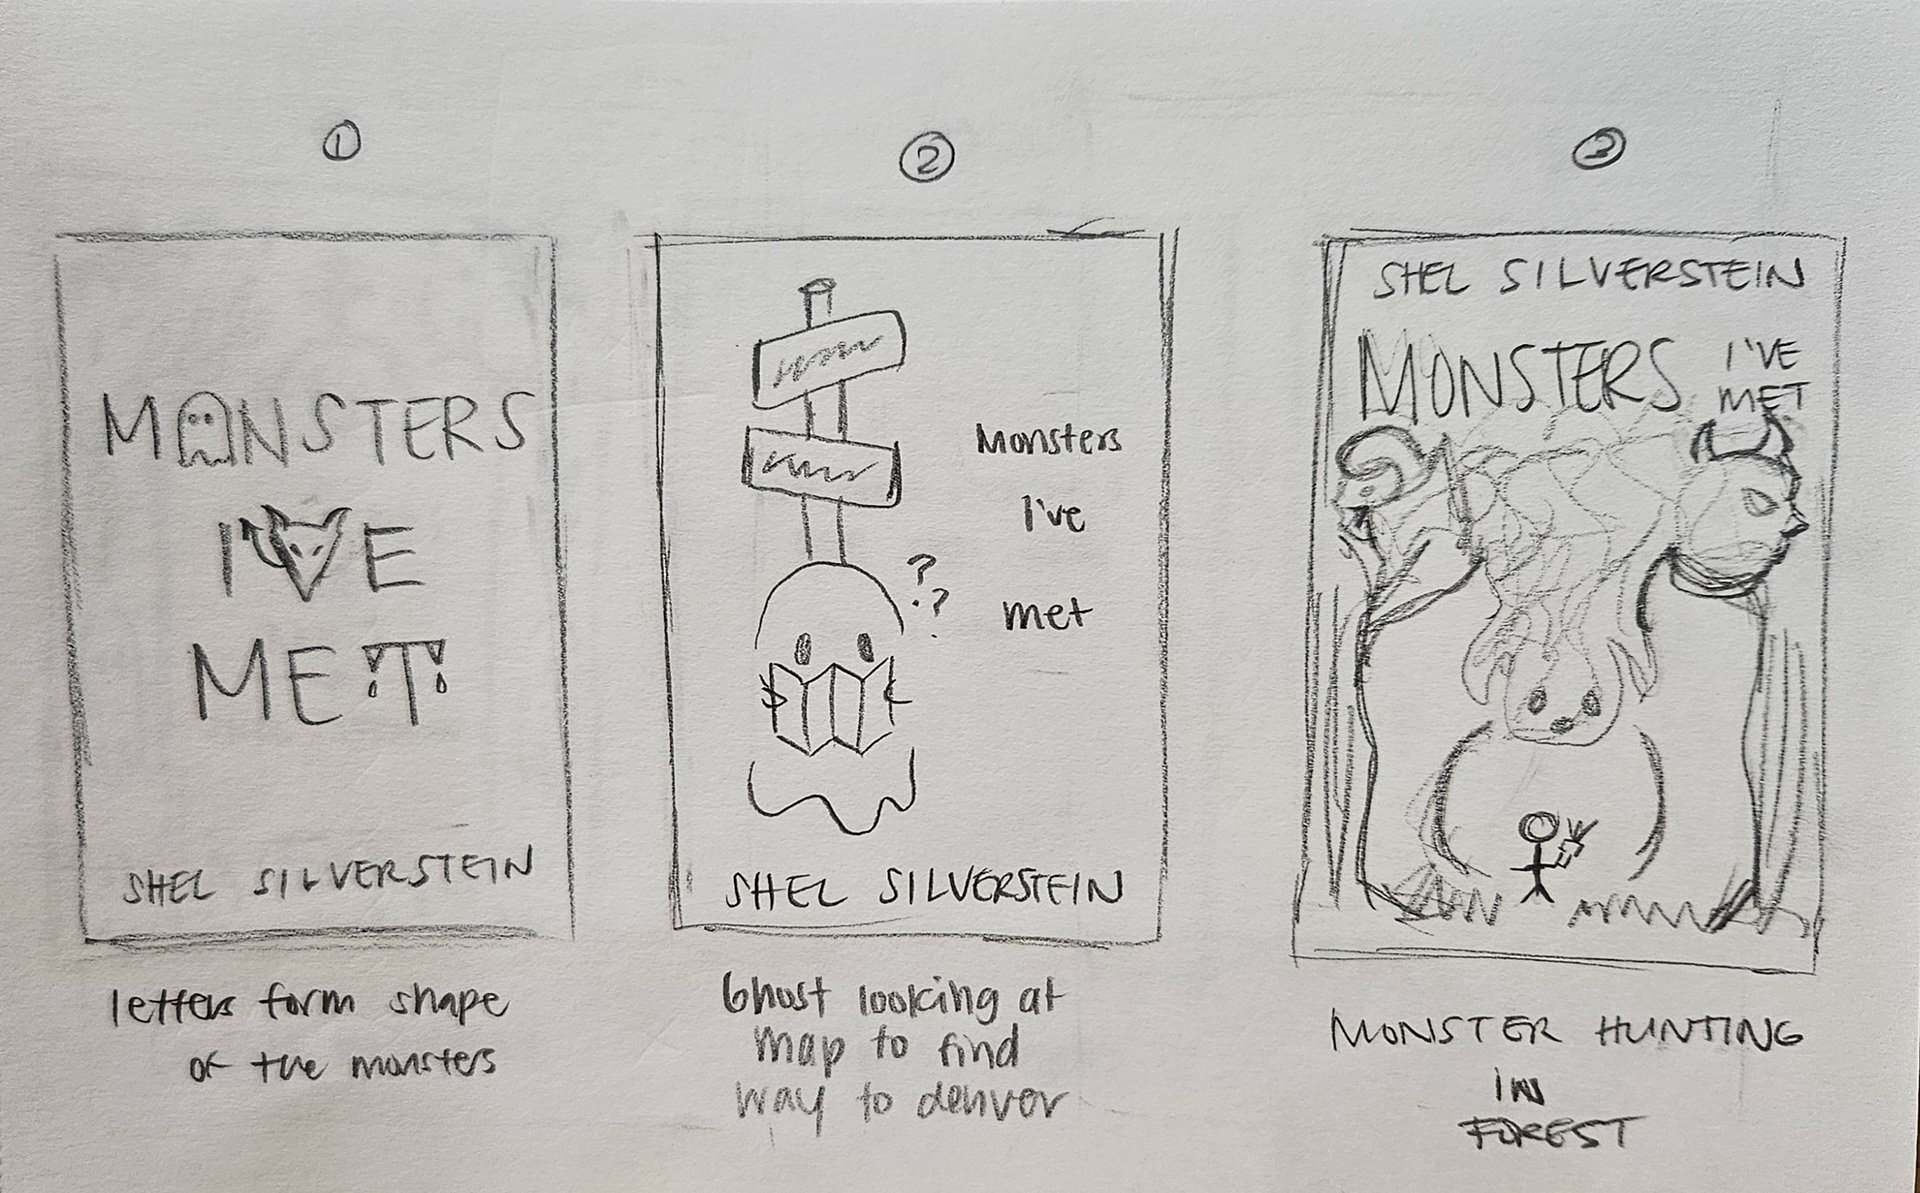 1
MONSTERS
I'VE
MET
SHEL SILVERSTEIN
letters form shape
of the monsters
2
Monsters
I've
met
??
SHEL SILVERSTEIN
Ghost looking at
map to find
way to denver
3
SHEL SILVERSTEIN
MONSTERS I'VE
MET
MONSTER HUNTING
IN
FOREST